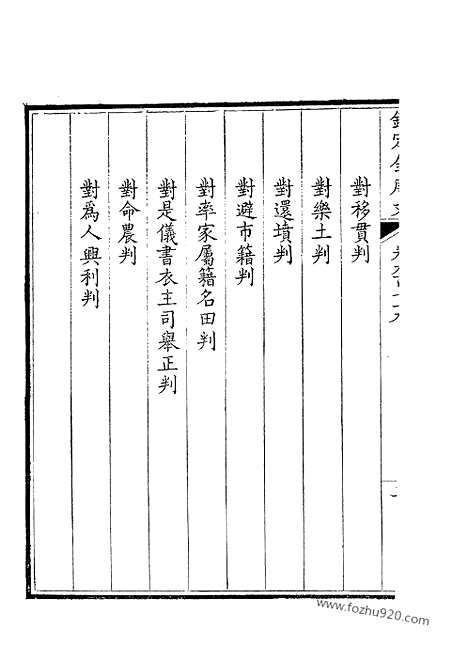 對移貫判
對樂土判
對還墳判
對避市籍判
對率家屬籍名田判
對是儀書衣主司舉正判
對命農判
對爲人興利判
www.fozhu920.com